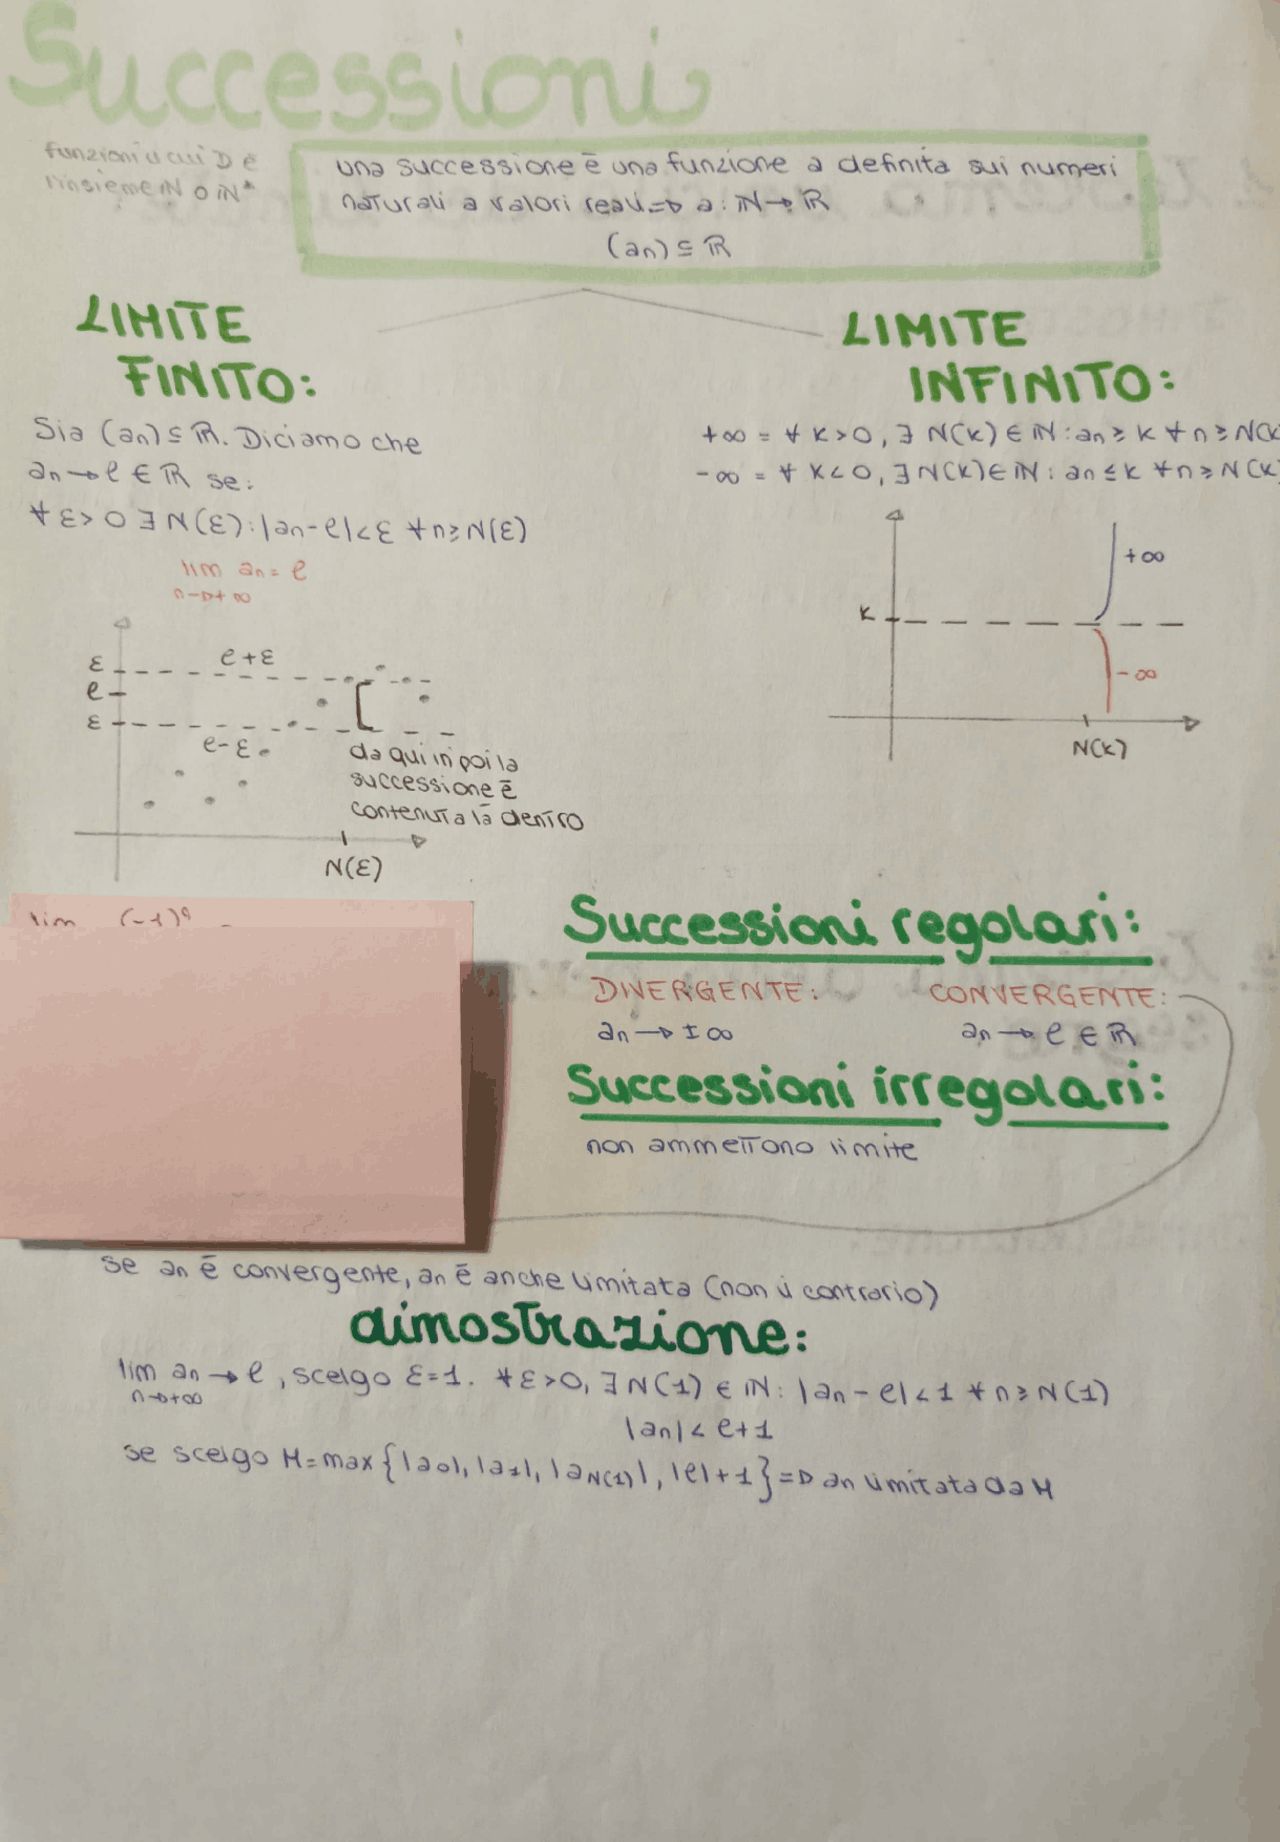 Successioni
funzioni il cui D è
l'insieme ℕ o ℕ*
una successione è una funzione a definita sui numeri
naturali a valori reali => a: ℕ → ℝ
(an) ⊆ ℝ
LIMITE
FINITO:
Sia (an) ⊆ ℝ. Diciamo che
an → ℓ ∈ ℝ se:
∀ ε > 0 ∃ N(ε): |an - ℓ| < ε ∀ n ≥ N(ε)
lim an = ℓ
n → +∞
ε
ℓ + ε
ℓ
ε
ℓ - ε
da qui in poi la
successione è
contenuta là dentro
N(ε)
LIMITE
INFINITO:
+∞ = ∀ K > 0, ∃ N(K) ∈ ℕ: an ≥ K ∀ n ≥ N(K
-∞ = ∀ K < 0, ∃ N(K) ∈ ℕ: an ≤ K ∀ n ≥ N(K
+∞
K
-∞
N(K)
lim (-1)
Successioni regolari:
DIVERGENTE:
an → ±∞
CONVERGENTE:
an → ℓ ∈ ℝ
Successioni irregolari:
non ammettono limite
se an è convergente, an è anche limitata (non il contrario)
dimostrazione:
lim an → ℓ, scelgo ε = 1. ∀ ε > 0, ∃ N(1) ∈ ℕ: |an - ℓ| < 1 ∀ n ≥ N(1)
n → +∞
|an| < ℓ + 1
se scelgo M = max {|a0|, |a1|, |aN(1)|, |ℓ| + 1} => an limitata da M